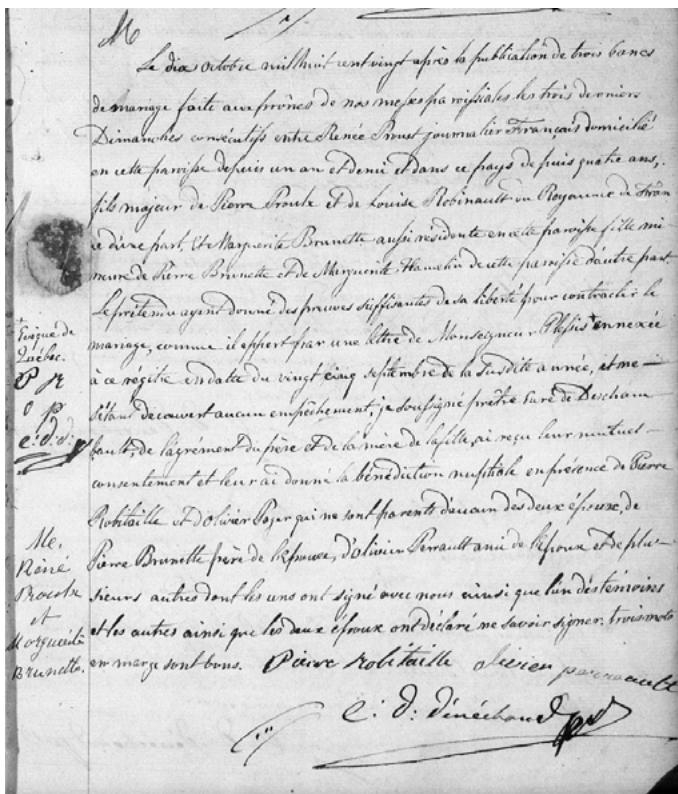 M
Le dix octobre mil huit cent vingt après la publication de trois bancs
de mariage faite aux prônes de nos messes paroissiales les trois derniers
Dimanches consécutifs entre Renée Proust journalier Français domicilié
en cette paroisse depuis un an et demi et dans ce pays depuis quatre ans,
fils majeur de Pierre Proulx et de Louise Robinault du Royaume de Fran
ce d'une part, Et Marguerite Brunette aussi résidente en cette paroisse fille mi-
neure de Pierre Brunette et de Marguerite Hamelin de cette paroisse d'autre part.
Le prétendu ayant donné des preuves suffisantes de sa liberté pour contracter le
mariage, comme il appert par une lettre de Monseigneur Plessis + annexée
à ce régitre en datte du vingt cinq septembre de la susdite année, et ne
s'étant découvert aucun empêchement, je soussigné prêtre curé de Descham
bault, de l'agrément du père et de la mère de la fille, ai reçu leur mutuel
consentement et leur ai donné la bénédiction nuptiale en présence de Pierre
Robitaille et d'olivier qui ne sont parents d'aucun des deux époux, de
Pierre Brunette père de l'épouse, d'olivier Perrault ami de l'époux et de plu-
sieurs autres dont les uns ont signé avec nous ainsi que l'un des témoins
et les autres ainsi que les deux époux ont déclaré ne savoir signer. trois mots
en marge sont bons. Pierre Robitaille olivier
c: d: dénéchaud ptre
+ Evêque de
Québec.
P R
o p
c: d: d:
M.
Réné
et
Marguerite
Brunette.